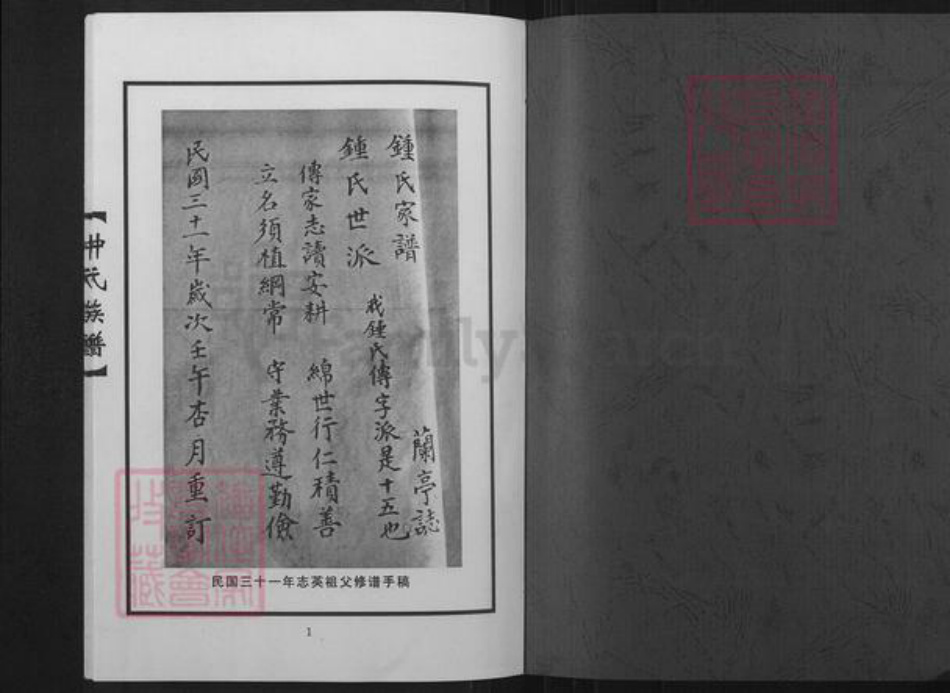 鍾氏家譜
蘭亭誌
鍾氏世派
我鍾氏傳字派是十五也
傳家志讀安耕 綿世行仁積善
立名須植綱常 守業務遵勤儉
民國三十一年歲次壬午杏月重訂
民国三十一年志英祖父修谱手稿
1
氏族譜】